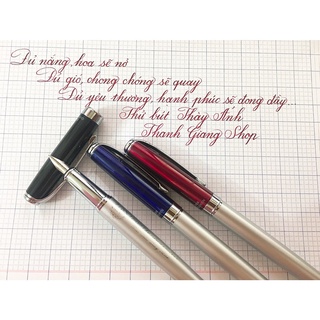 Đủ nắng, hoa sẽ nở
Đủ gió, chong chóng sẽ quay
Đủ yêu thương, hạnh phúc sẽ đong đầy...
Thử bút Thầy Ánh
Thanh Giang Shop